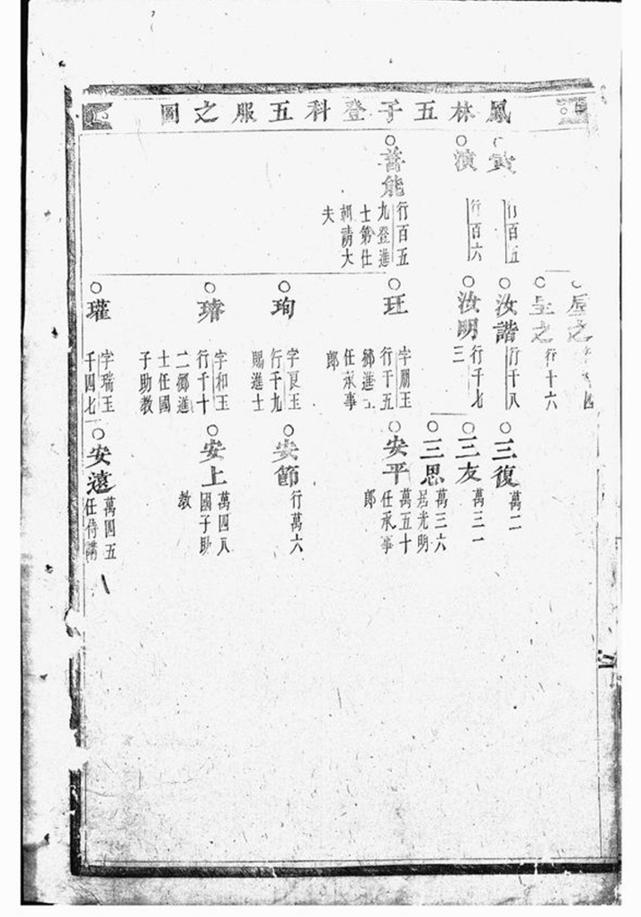 鳳林五子登科五服之圖
行百五
演
行百六
善能
行百五
九登進
士第仕
朝請大
夫
之
之
行十六
汝諧
行千八
汝明
行千七
三
玨
字朋玉
行千五
鄉進士
任承事
郎
珣
字良玉
行千九
賜進士
璿
字和玉
行千十
二鄉進
士任國
子助教
瓘
字瑞玉
千四七
三復
萬二
三友
萬三一
三思
萬三六
居光明
安平
萬五十
任承事
郎
安節
行萬六
安上
萬四八
國子助
教
安遠
萬四五
任侍講